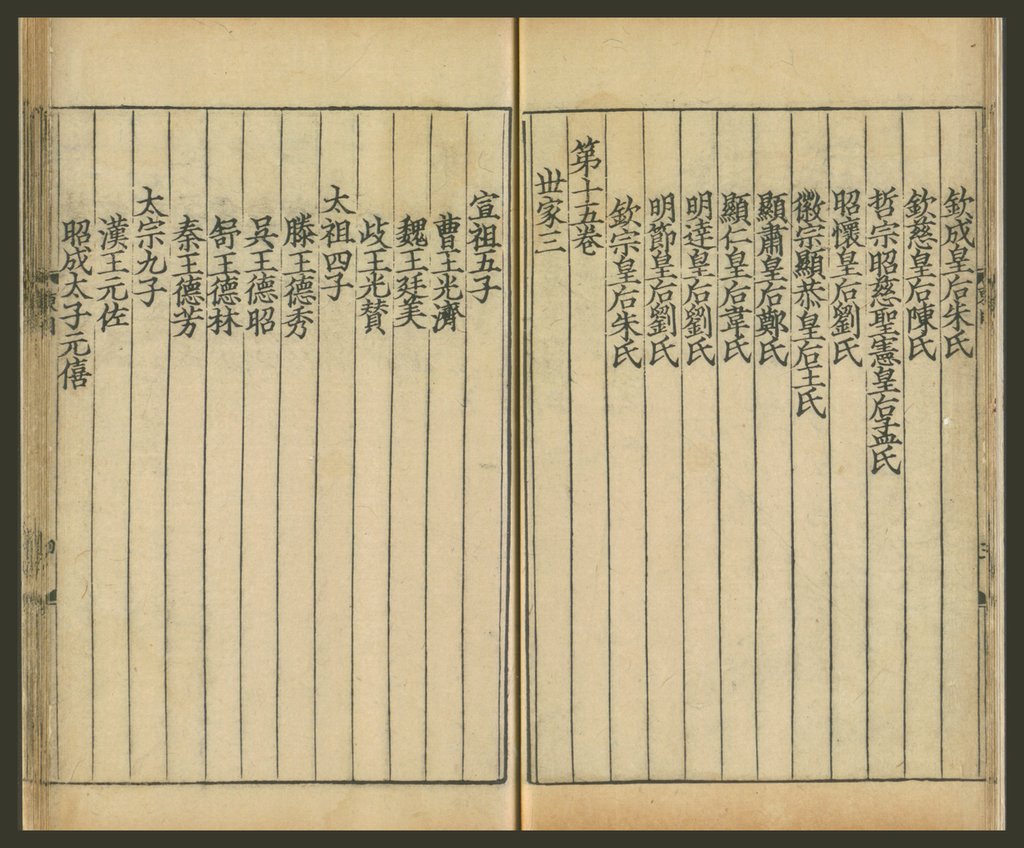 欽成皇后朱氏
欽慈皇后陳氏
哲宗昭慈聖憲皇后孟氏
昭懷皇后劉氏
徽宗顯恭皇后王氏
顯肅皇后鄭氏
顯仁皇后韋氏
明達皇后劉氏
明節皇后劉氏
欽宗皇后朱氏
第十五卷
世家三
宣祖五子
曹王光濟
魏王廷美
歧王光贊
太祖四子
滕王德秀
吳王德昭
舒王德林
秦王德芳
太宗九子
漢王元佐
昭成太子元僖